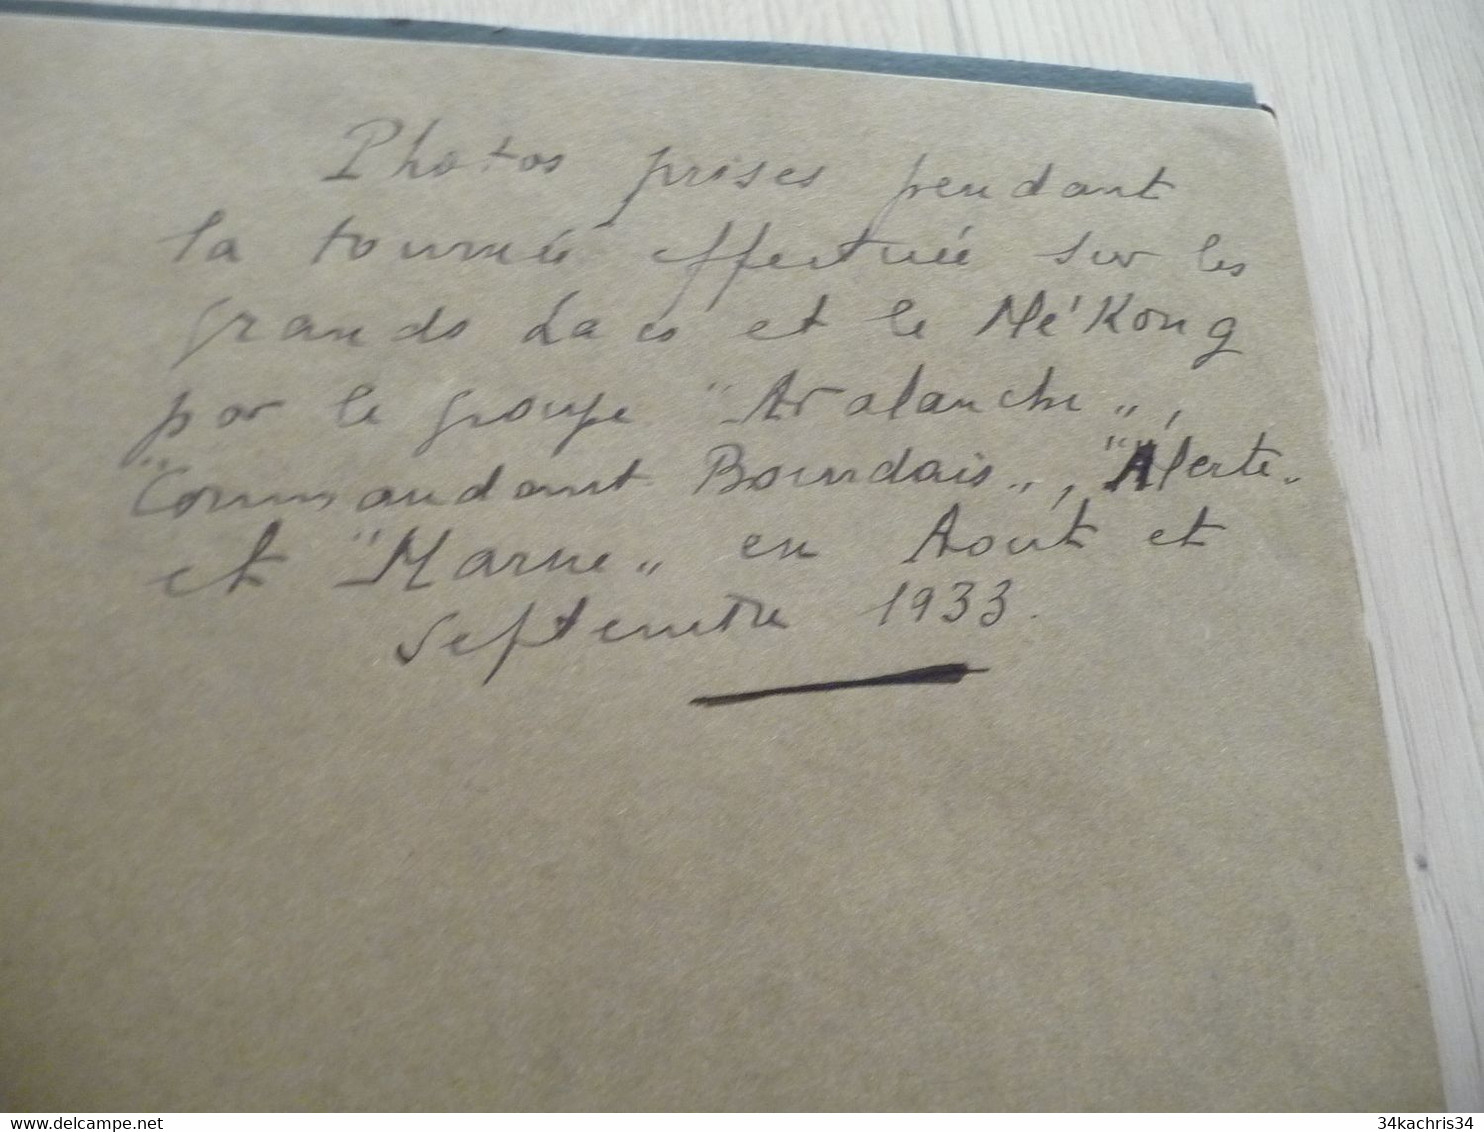 Photos prises pendant
la tournée effectuée sur les
grands Lacs et le Mé'Kong
par le groupe "Avalanche",
"Commandant Bourdais", "Alerte"
et "Marne" en Août et
septembre 1933.
34kachris34
delcampe.net
34kachris34